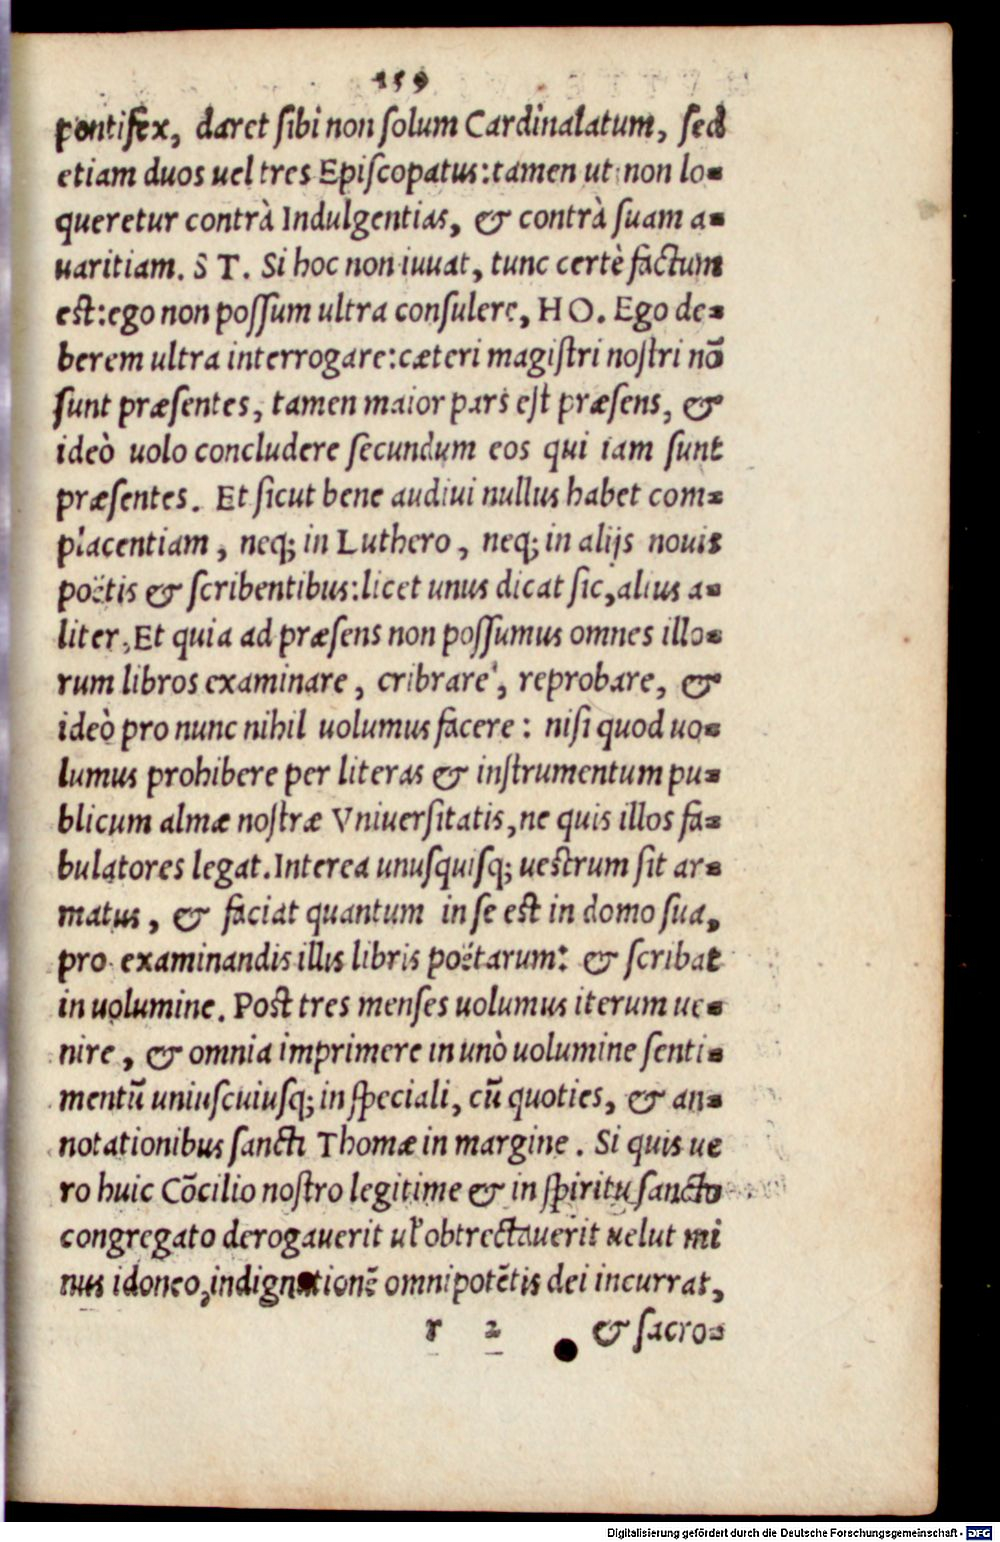 159
pontifex, daret ſibi non ſolum Cardinalatum, ſed
etiam duos uel tres Epiſcopatus: tamen ut non lo-
queretur contrà Indulgentias, & contrà ſuam a-
uaritiam. S T. Si hoc non iuuat, tunc certè factum
est: ego non poſſum ultra conſulere, H O. Ego de-
berem ultra interrogare: cæteri magiſtri noſtri nō
ſunt præſentes, tamen maior pars eſt præſens, &
ideò uolo concludere ſecundum eos qui iam ſunt
præſentes. Et ſicut bene audiui nullus habet com-
placentiam, neq; in Luthero, neq; in alijs nouis
poëtis & ſcribentibus: licet unus dicat ſic, alius a-
liter, Et quia ad præſens non poſſumus omnes illo-
rum libros examinare, cribrare, reprobare, &
ideò pro nunc nihil uolumus facere: niſi quod uo-
lumus prohibere per literas & inſtrumentum pu-
blicum almæ noſtræ Vniuerſitatis, ne quis illos fa-
bulatores legat. Interea unuſquiſq; uestrum ſit ar-
matus, & faciat quantum in ſe est in domo ſua,
pro examinandis illis libris poëtarum: & ſcribat
in uolumine. Post tres menſes uolumus iterum ue-
nire, & omnia imprimere in unò uolumine ſenti-
mentū uniuſcuiuſq; in ſpeciali, cū quoties, & an-
notationibus ſancti Thomæ in margine. Si quis ue
ro huic Cōcilio noſtro legitime & in ſpiritu ſancto
congregato derogauerit uł obtrectauerit uelut mi
nus idoneo, indignationē omnipotētis dei incurrat,
r 2 & ſacro-
Digitalisierung gefördert durch die Deutsche Forschungsgemeinschaft - DFG